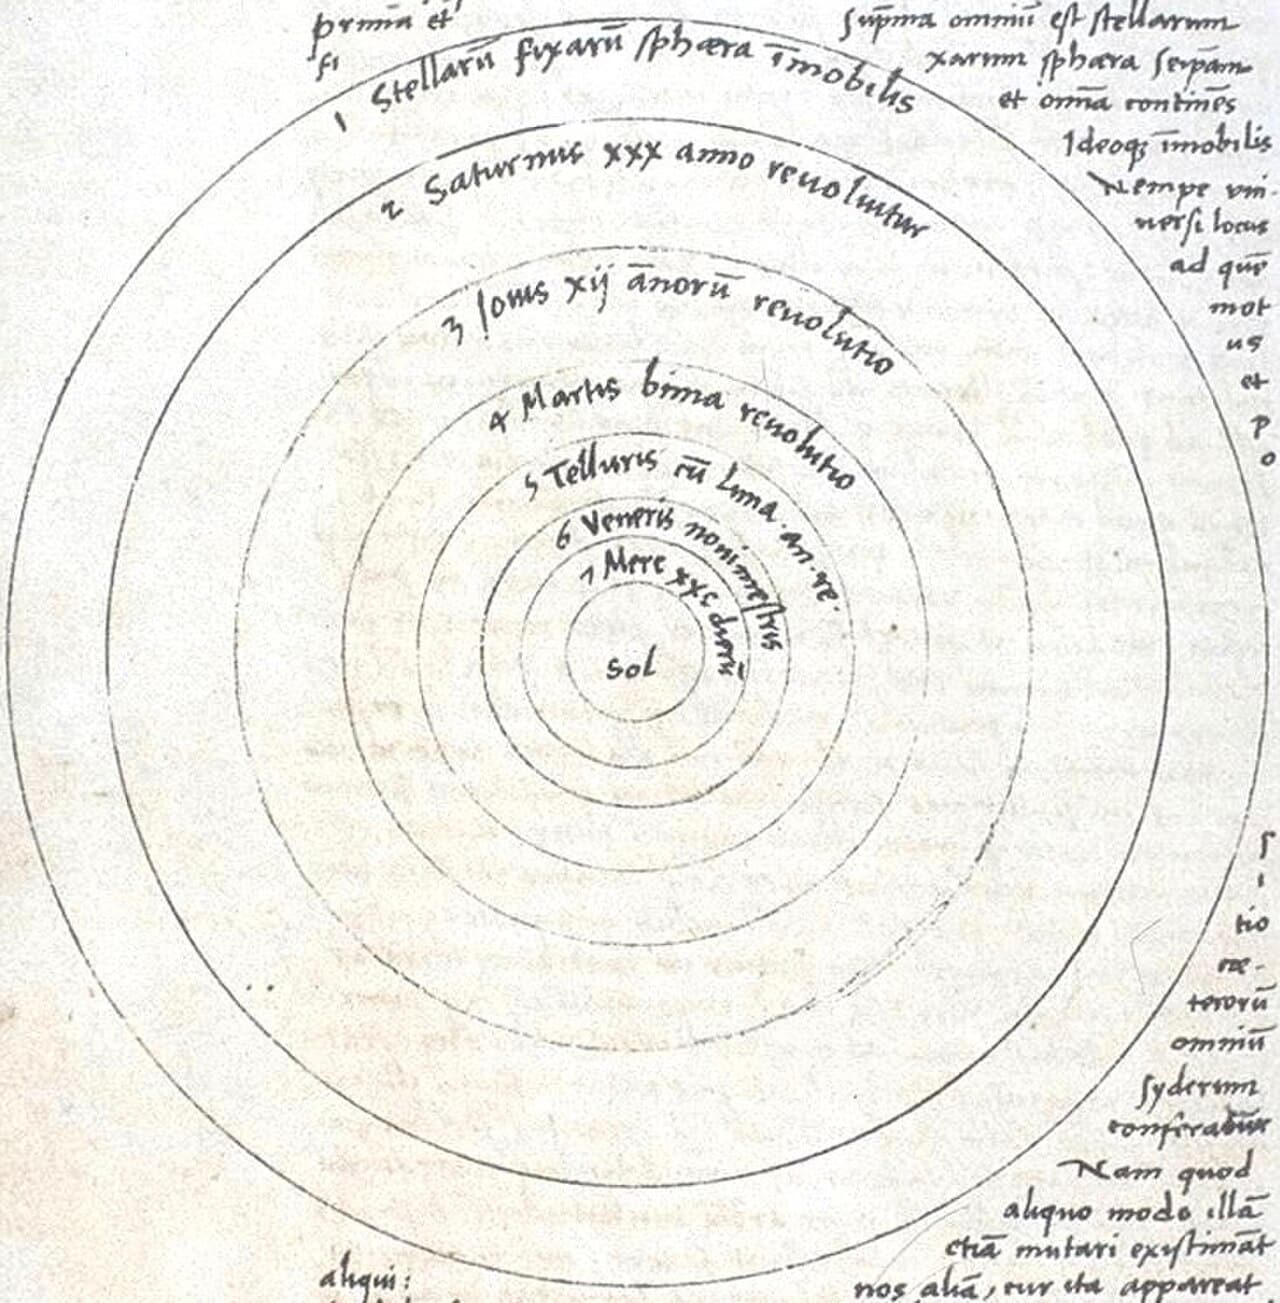 prima et
fi
Supma omniū est stellarum
xarum sphæra seipam
et omnia continēs
Ideoqȝ īmobilis
Nempe uni-
uersi locus
ad quē
mot
us
et
p
o
1 Stellarū fixarū sphæra īmobilis
2 Saturnus xxx anno reuoluitur
3 Iouis xij ānorū reuolutio
4 Martis bima reuolutio
5 Telluris cū Luna . an . re .
6 Veneris nonimestris
7 Merc xxc dierū
Sol
s
i
tio
cæ-
terorū
omniū
syderum
conferatur
Nam quod
aliquo modo illā
etiā mutari existimāt
aliqui :
nos aliā , cur ita appareat